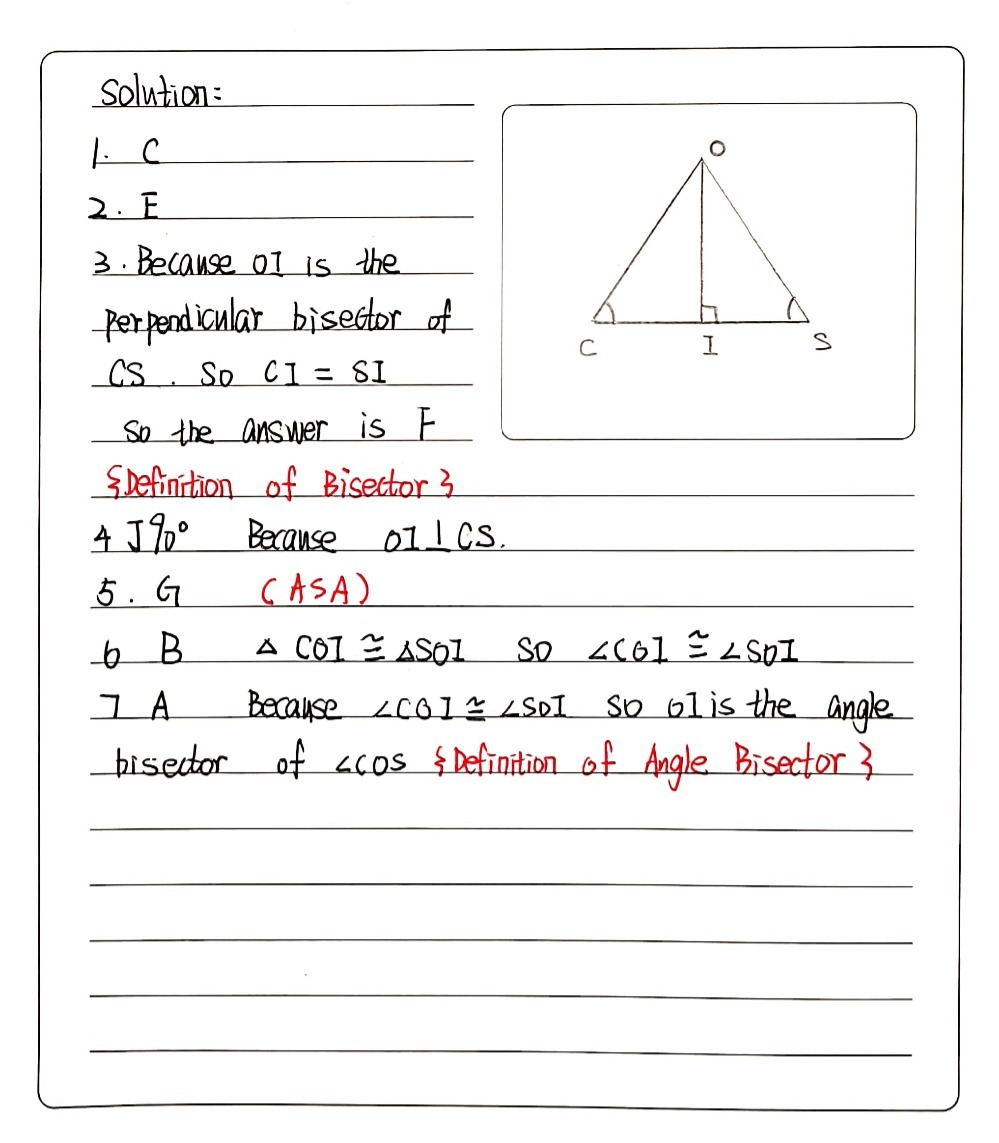 Solution:
1. C
2. E
3. Because OI is the
perpendicular bisector of
CS. So CI = SI
So the answer is F
{Definition of Bisector}
4 J 90° Because OI⊥CS.
5. G (ASA)
6 B △COI ≅ △SOI So ∠COI ≅ ∠SOI
7 A Because ∠COI ≅ ∠SOI So OI is the angle
bisector of ∠COS {Definition of Angle Bisector}
O
C I S